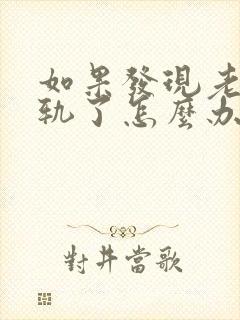 如果發現老
軌了怎麼办
對井當歌